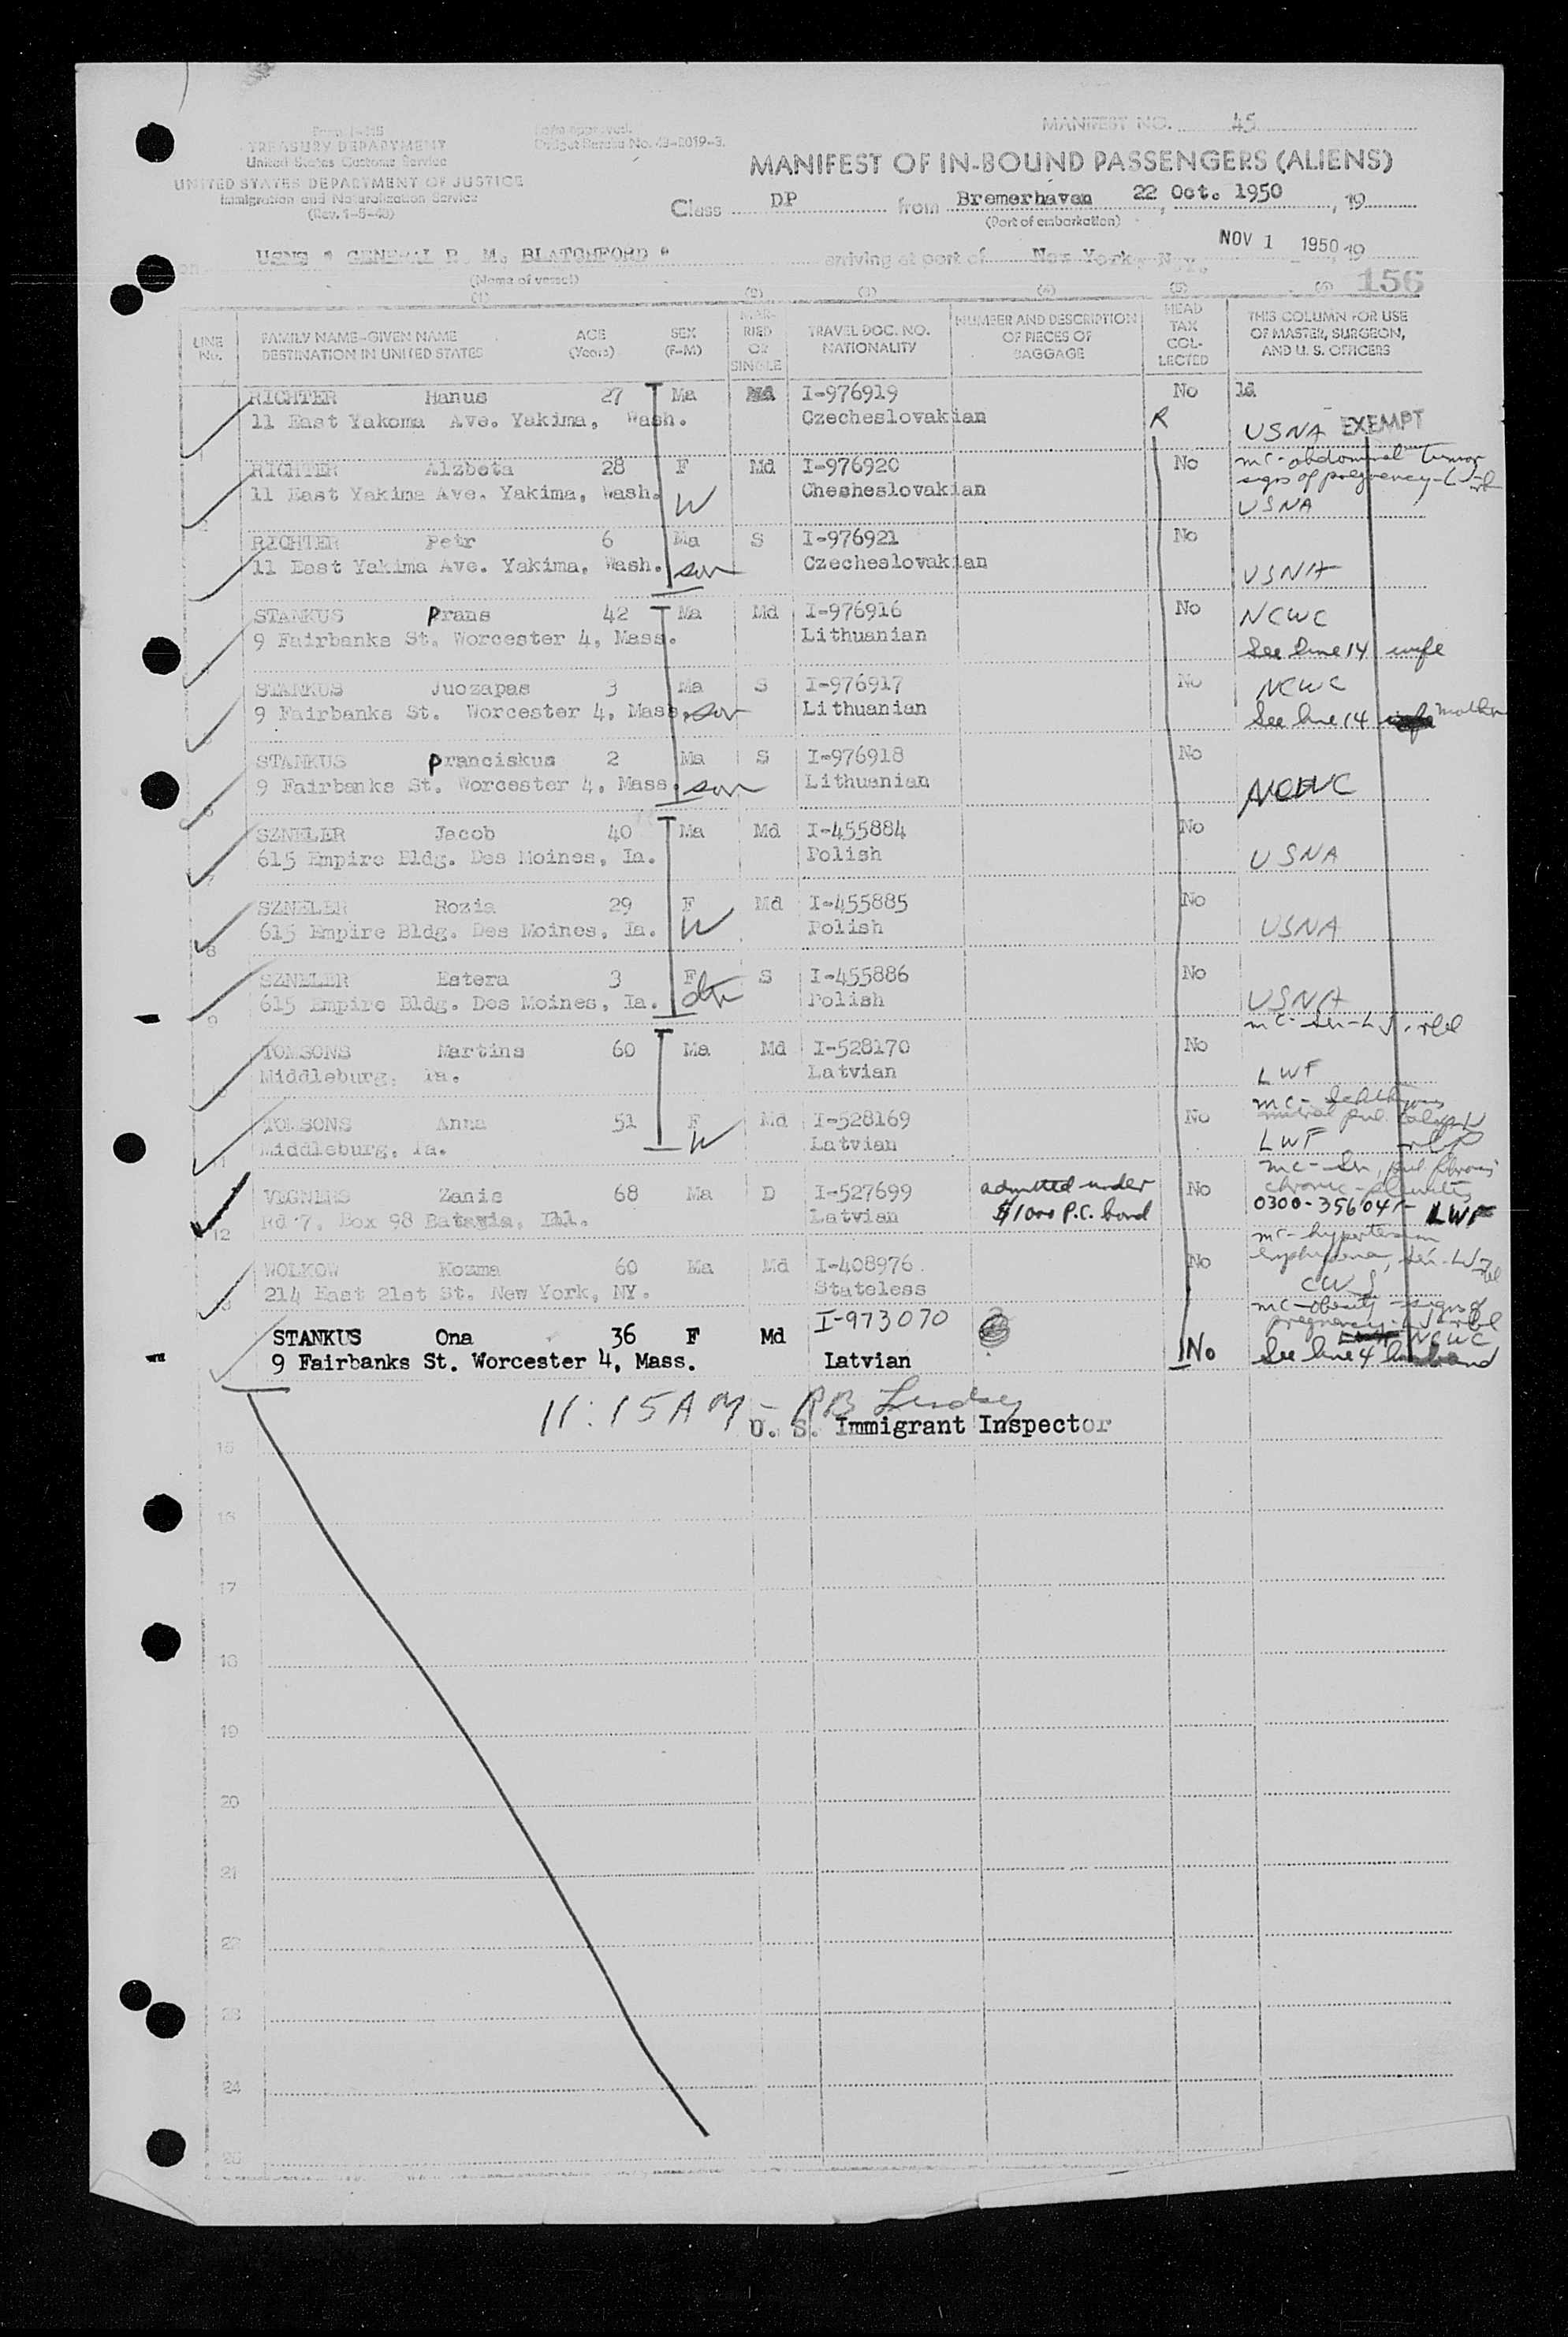 Form I-415
TREASURY DEPARTMENT
United States Customs Service
UNITED STATES DEPARTMENT OF JUSTICE
Immigration and Naturalization Service
(Rev. 1-5-48)
Form approved.
Budget Bureau No. 43-R019-3.
MANIFEST NO. 45
MANIFEST OF IN-BOUND PASSENGERS (ALIENS)
Class DP from Bremerhaven 22 Oct. 1950, 19
(Port of embarkation)
on USNS " GENERAL R. M. BLATCHFORD " arriving at port of New York, N.Y. NOV 1 1950, 19
(Name of vessel)
156
(1) (2) (3) (4) (5) (6)
LINE No. FAMILY NAME-GIVEN NAME DESTINATION IN UNITED STATES AGE (Years) SEX (F-M) MARRIED OR SINGLE TRAVEL DOC. NO. NATIONALITY NUMBER AND DESCRIPTION OF PIECES OF BAGGAGE HEAD TAX COLLECTED THIS COLUMN FOR USE OF MASTER, SURGEON, AND U. S. OFFICERS
RICHTER Hanus 27 Ma Md I-976919 No
11 East Yakoma Ave. Yakima, Wash. Czecheslovakian R USNA EXEMPT
RICHTER Alzbeta 28 F Md I-976920 No mc-abdominal tumor
signs of pregnancy
11 East Yakima Ave. Yakima, Wash. W Chesheslovakian USNA
RICHTER Petr 6 Ma S I-976921 No
11 East Yakima Ave. Yakima, Wash. son Czecheslovakian USNA
STANKUS Prans 42 Ma Md I-976916 No NCWC
9 Fairbanks St. Worcester 4, Mass. Lithuanian See line 14 wife
STANKUS Juozapas 3 Ma S I-976917 No NCWC
9 Fairbanks St. Worcester 4, Mass. son Lithuanian See line 14 mother
STANKUS Pranciskus 2 Ma S I-976918 No
9 Fairbanks St. Worcester 4, Mass. son Lithuanian NCWC
SZNELER Jacob 40 Ma Md I-455884 No
7 615 Empire Bldg. Des Moines, Ia. Polish USNA
SZNELER Rozia 29 F Md I-455885 No
8 615 Empire Bldg. Des Moines, Ia. W Polish USNA
SZNELER Estera 3 F S I-455886 No
9 615 Empire Bldg. Des Moines, Ia. dtr Polish USNA
TOMSONS Martins 60 Ma Md I-528170 No
Middleburg, Ia. Latvian LWF
TOMSONS Anna 51 F Md I-528169 No
11 Middleburg, Ia. W Latvian LWF
VEGNERS Zanis 68 Ma D I-527699 admitted under No
12 Rd 7, Box 98 Batavia, Ill. Latvian $1000 P.C. bond 0300-356041- LWF
WOLKOW Kozma 60 Ma Md I-408976 No mc-hypertension
emphysema
214 East 21st St. New York, NY. Stateless CWS
STANKUS Ona 36 F Md I-973070 mc-obesity - signs of
pregnancy NCWC
9 Fairbanks St. Worcester 4, Mass. Latvian No See line 4 husband
11:15AM - RB Lindsey
U. S. Immigrant Inspector
15
16
17
18
19
20
21
22
23
24
25